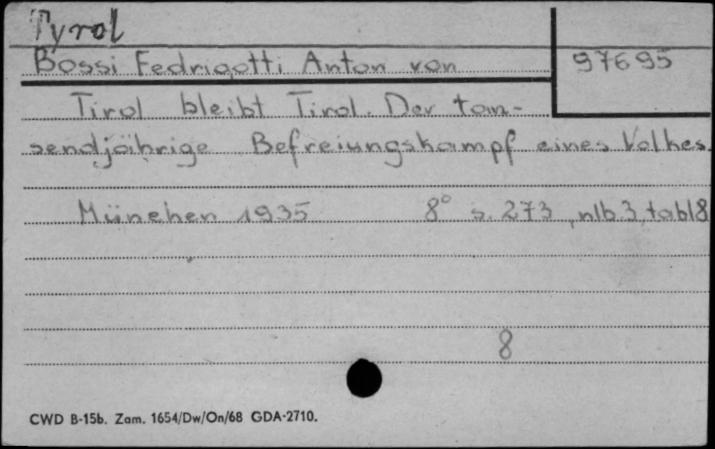 Tyrol
Bossi Fedrigotti Anton von 97695
Tirol bleibt Tirol. Der tau-
sendjährige Befreiungskampf eines Volkes.
München 1935 8° s. 273, nlb. 3, tabl 8
8
CWD B-15b. Zam. 1654/Dw/On/68 GDA-2710.